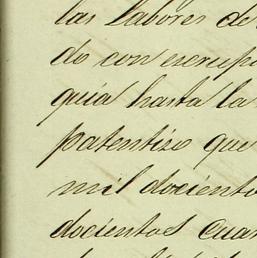 las labores de
do con escrupu
guia hasta la
patentiso que
mil dociento
docientos cuar